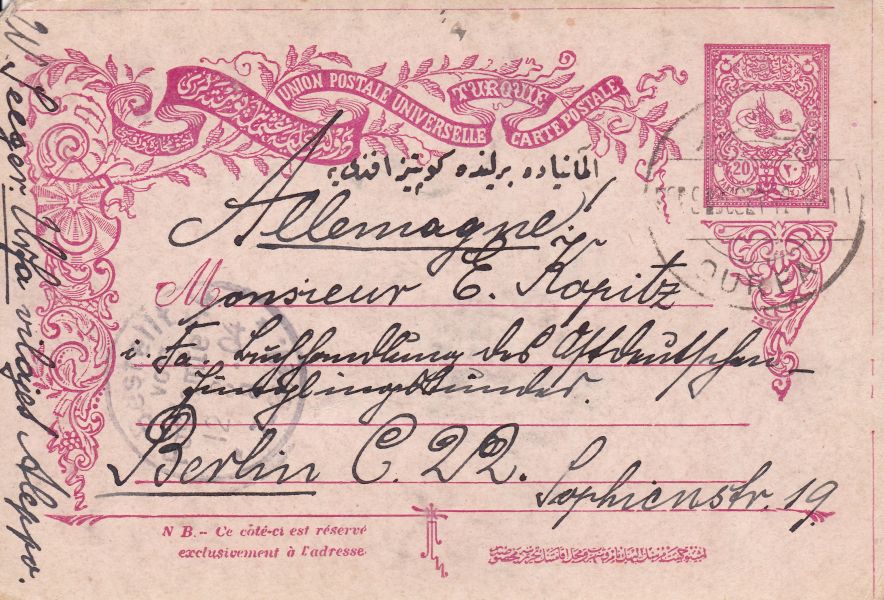 UNION POSTALE UNIVERSELLE
TURQUIE
CARTE POSTALE
20 ٢٠
المانياده برلنده كوپتيز افندی يه
Allemagne!
Monsieur E. Kopitz
i. Fa. Buchhandlung des Ostdeutschen
Jünglingsbundes.
Berlin C. 22. Sophienstr. 19.
N B.- Ce côté-ci est réservé
exclusivement à l'adresse
OURFA
Bestellt
vom
12
Seeger. Urfa
vilajet Aleppo.